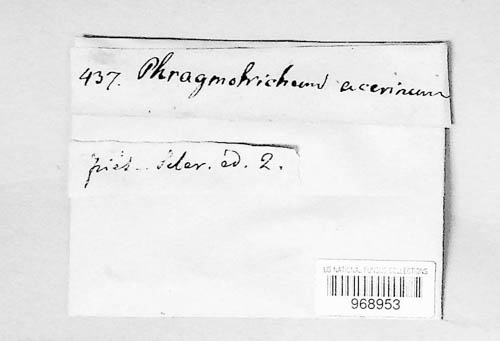 437. Phragmotrichum acerinum
fries. Scler. ed. 2.
US NATIONAL FUNGUS COLLECTIONS
968953